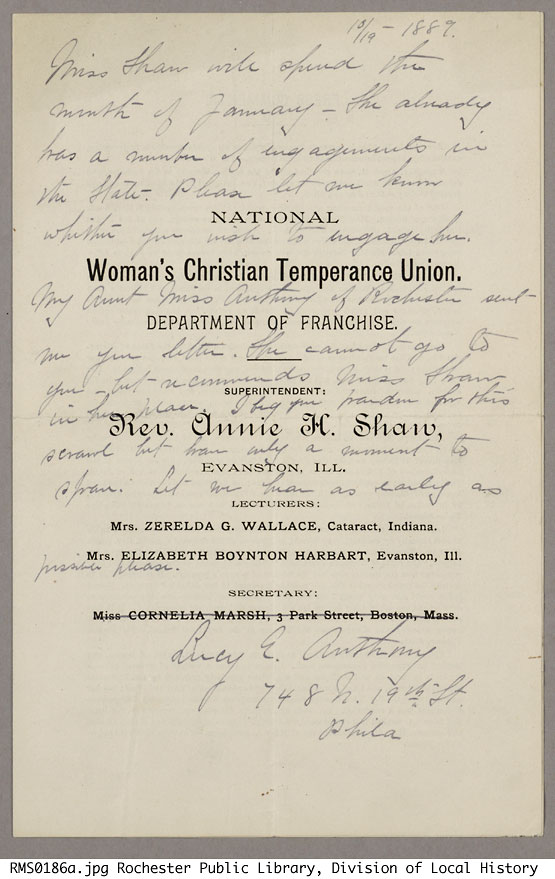 10/19 - 1889.
Miss Shaw will spend the
month of January - She already
has a number of engagements in
the State. Please let me know
NATIONAL
whether you wish to engage her.
Woman's Christian Temperance Union.
My Aunt Miss Anthony of Rochester sent
DEPARTMENT OF FRANCHISE.
me your letter. She cannot go to
you - but recommends Miss Shaw
SUPERINTENDENT:
in her place. I beg your pardon for this
Rev. Annie H. Shaw,
scrawl but have only a moment to
EVANSTON, ILL.
spare. Let me hear as early as
LECTURERS:
Mrs. ZERELDA G. WALLACE, Cataract, Indiana.
Mrs. ELIZABETH BOYNTON HARBART, Evanston, Ill.
possible please.
SECRETARY:
Miss CORNELIA MARSH, 3 Park Street, Boston, Mass.
Lucy E. Anthony
748 N. 19th St.
Phila
RMS0186a.jpg Rochester Public Library, Division of Local History